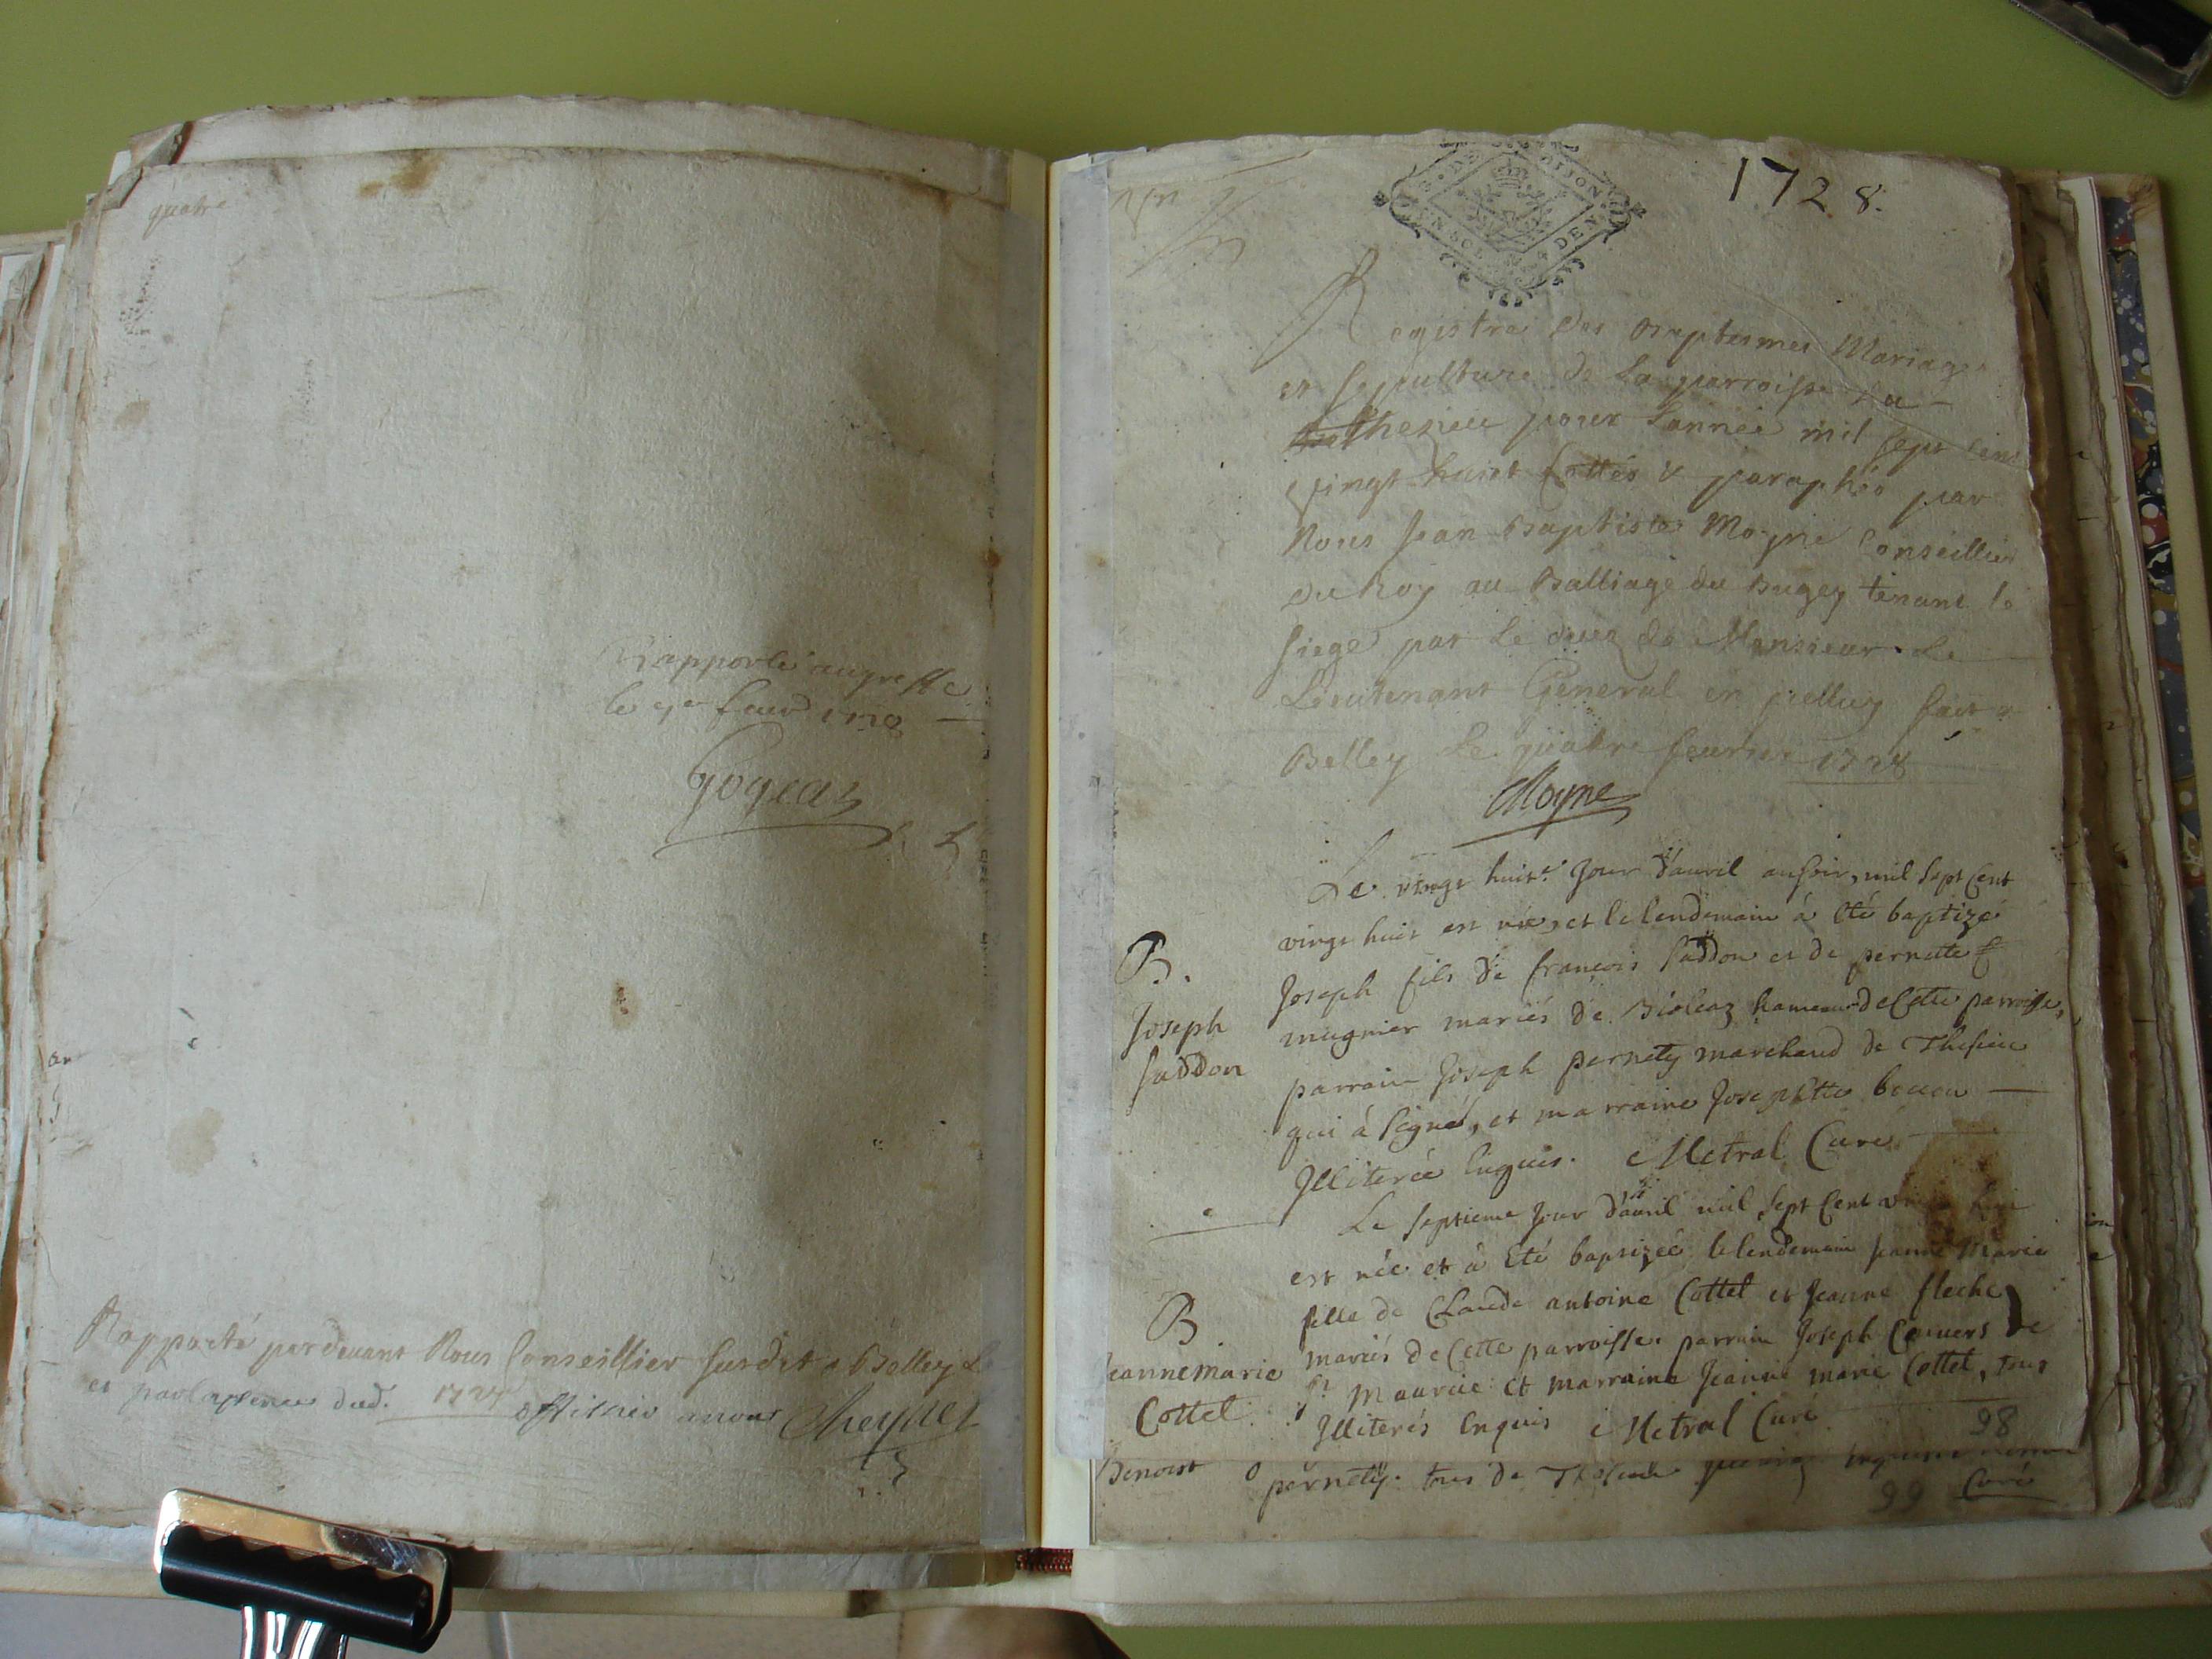 quatre
Rapporté au greffe
le
Rapporté pardevant Nous Conseillier susdit a Belley Le
et
1728.
G. DE DIJON
UN SOL DEN
Registre des Baptesmes Mariages
et sepulture de La parroisse La
Thezieu pour Lannée mil sept cens
vingt huict Cottés & paraphés par
Nous Jean Baptiste Moyne Conseillier
du Roy au Balliage du Bugey tenant le
siege par le deces de Monsieur Le
Lieutenant General en jcelluy fait a
Belley Le quatre feburier 1728
Moyne
Le vingt huit.e Jour d'auril au soir, mil sept cent
vingt huit est né, et le lendemain à été baptizé
B.
Joseph
Joseph fils de françois et de pernette
mugnier mariés de Bioleaz hameau de Cette parroisse,
parrain Joseph pernety marchand de Thesieu
qui à signé, et marraine Josephtte
Jlliterée Enquis. Metral Curé
Le septieme Jour d'auril mil sept Cent
est née et à été baptizée le lendemain Jeanne Marie
B
Jeanne marie
Cottel
fille de Claude antoine Cottel et Jeanne fleche
mariés de Cette parroisse. parrain Joseph de
St Maurice et marraine Jeanne marie Cottel, tous
Jlliterés Enquis Metral Curé
98
Benoist
pernety. tous de
99 Curé